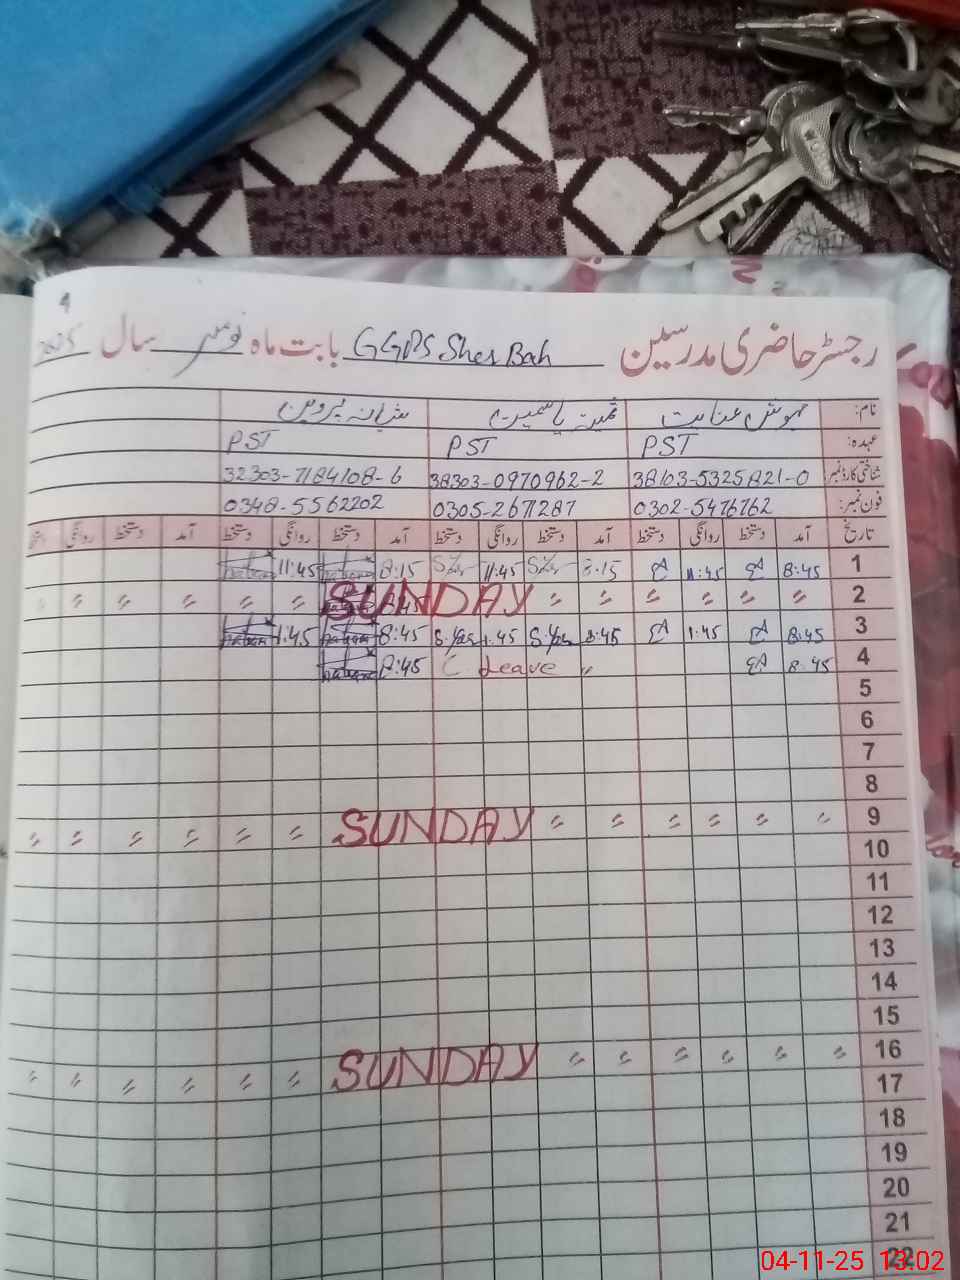 4
رجسٹر حاضری مدرسین GGPS Sher Bah بابت ماہ نومبر سال 2025
نام: مہوش عنایت ثمینہ یاسمین شبانہ پروین
عہدہ: PST PST PST
شناختی کارڈ نمبر: 38103-5325821-0 38303-0970962-2 32303-7184108-6
فون نمبر: 0302-5476762 0305-2671287 0348-5562202
تاریخ آمد دستخط روانگی دستخط آمد دستخط روانگی دستخط آمد دستخط روانگی دستخط آمد دستخط روانگی
1 8:45 11:45 8:15 11:45 8:15 11:45
2 〃 〃 〃 〃 〃 〃 SUNDAY 〃 〃 〃 〃 〃
3 8:45 1:45 8:45 S.Yas 1:45 S.Yas 8:45 1:45
4 8:45 〃 Leave C. 8:45
5
6
7
8
9 〃 〃 〃 〃 〃 〃 SUNDAY 〃 〃 〃 〃 〃 〃
10
11
12
13
14
15
16 〃 〃 〃 〃 〃 〃 SUNDAY 〃 〃 〃 〃 〃 〃
17
18
19
20
21
22
04-11-25 13:02